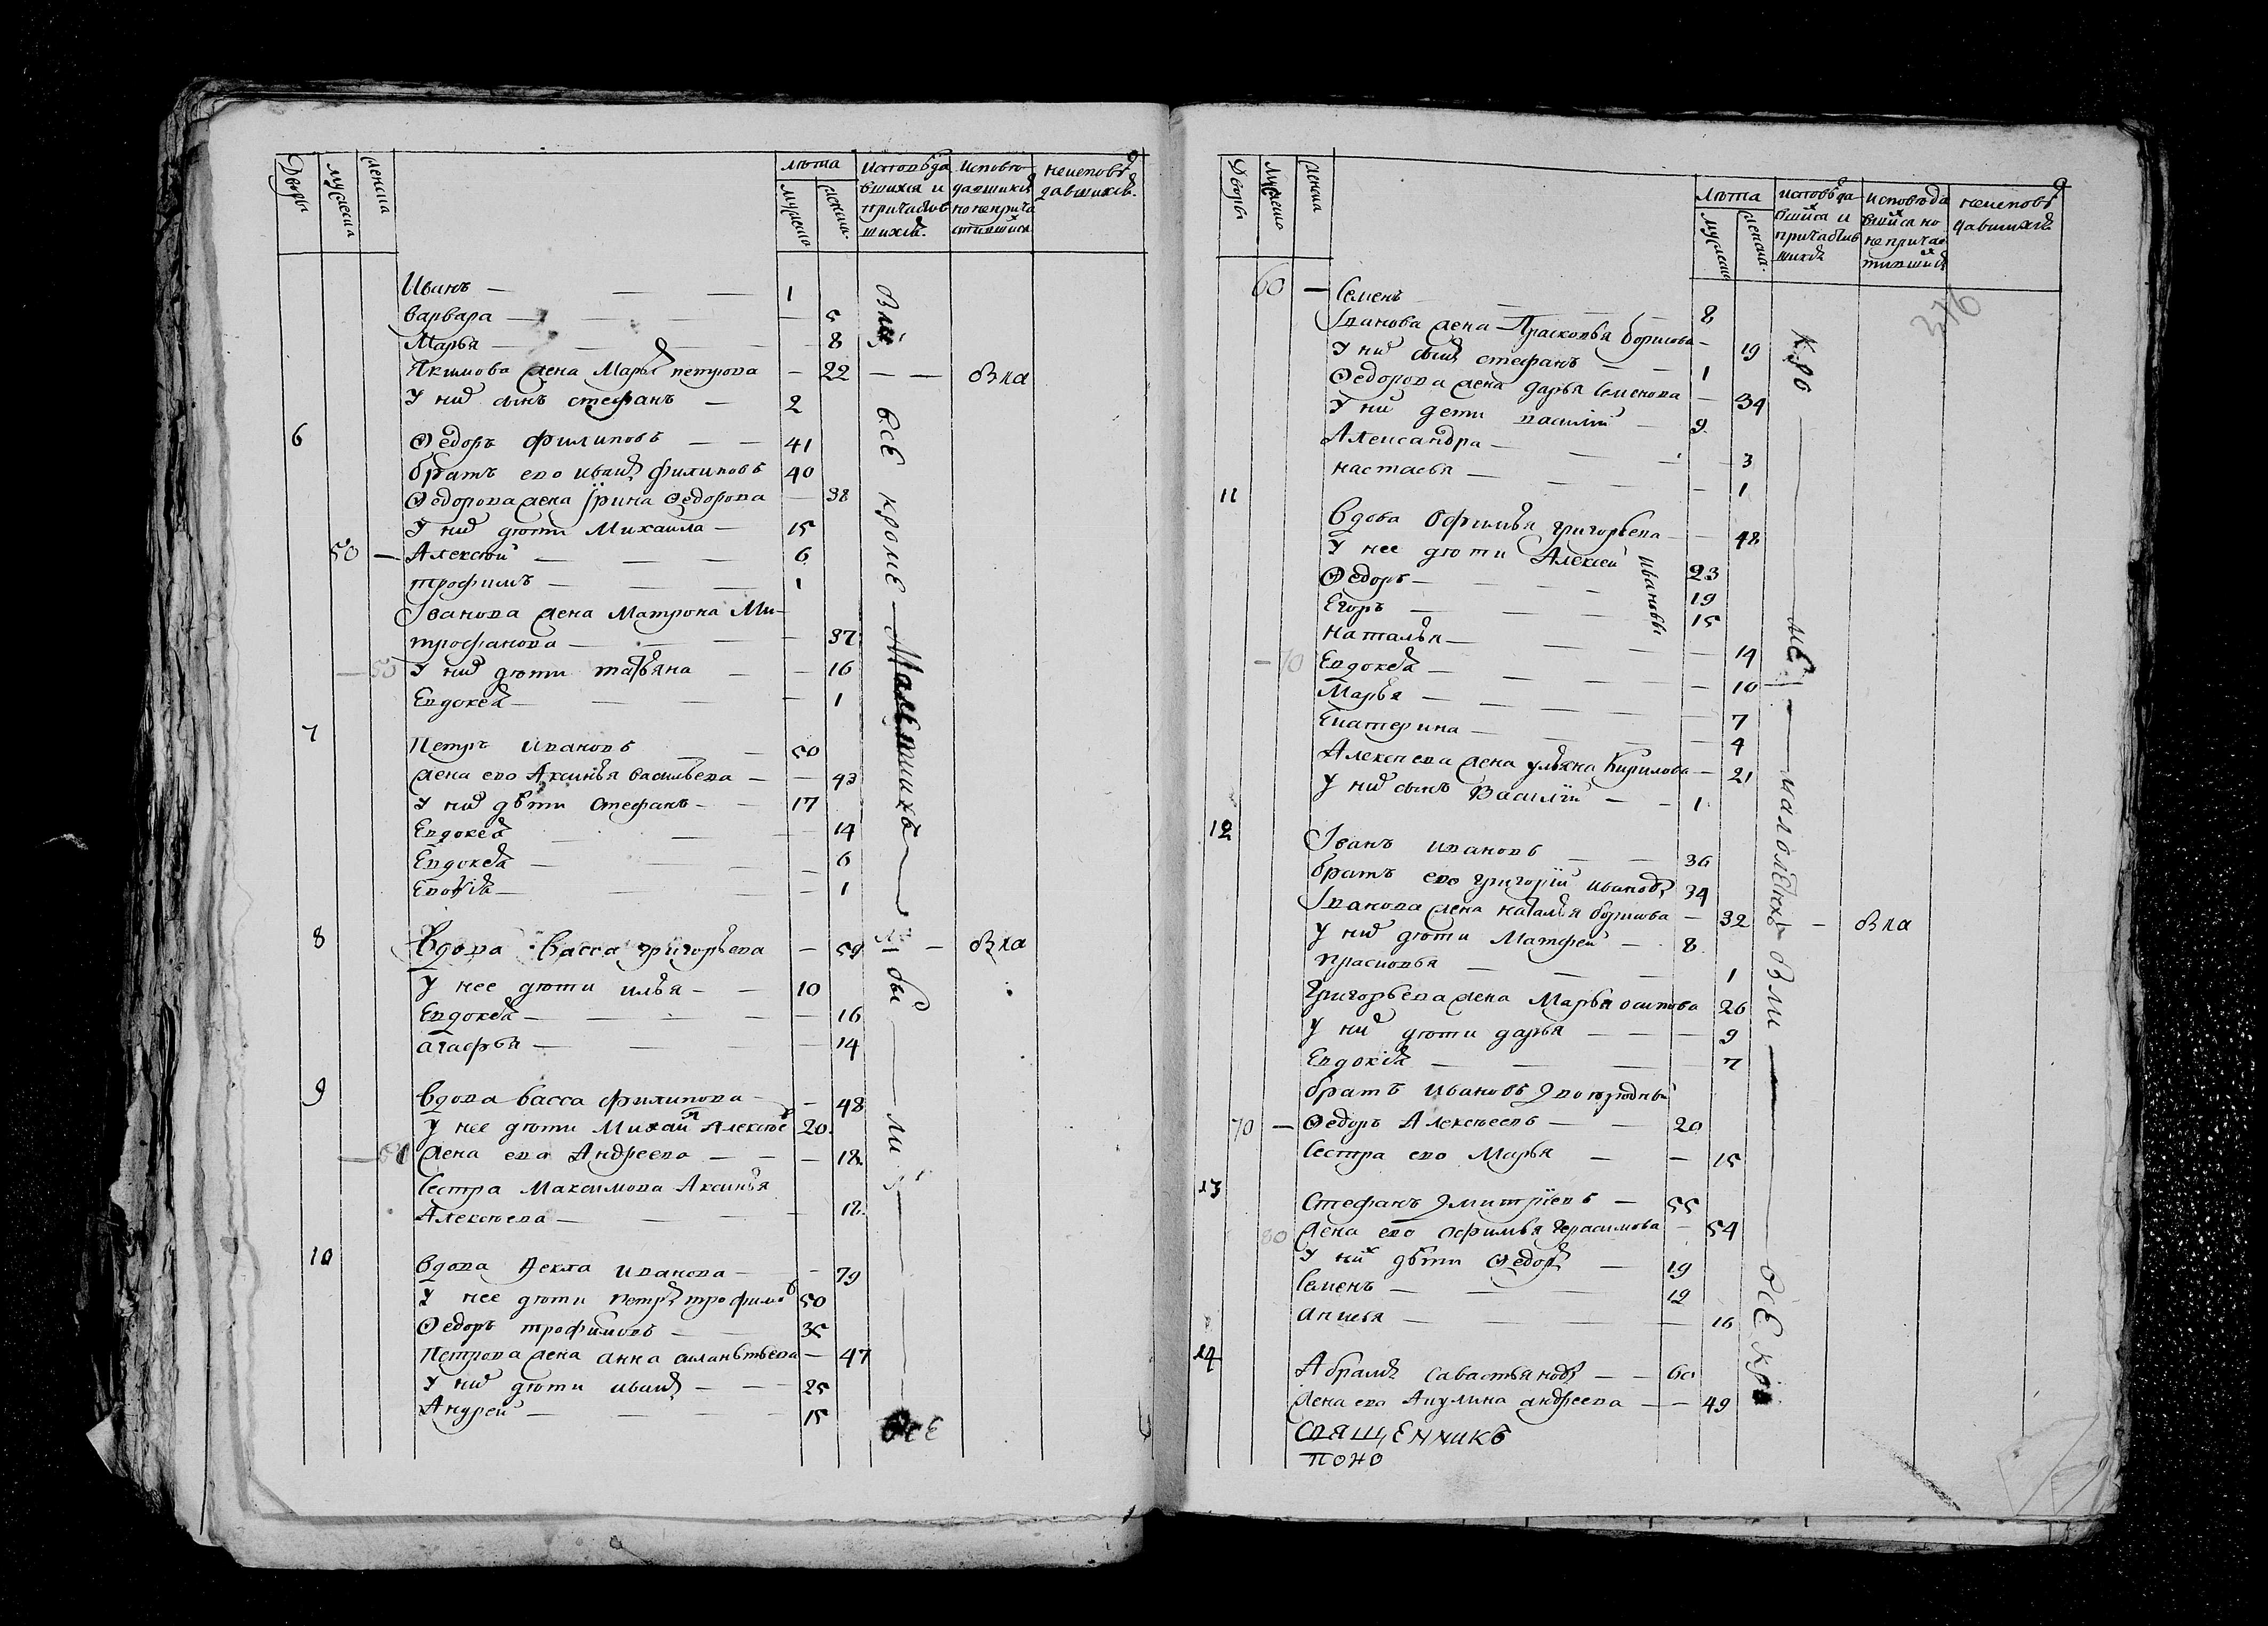 Дворы мужеска женска лѣта мужеска женска. исповѣдавшихся и причастившихся. исповѣдавшихся но не причастившихся неисповѣдавшихся.
Иванъ — 1
варвара — 5
Марья — 8
Якимова жена Марья петрова — 22 — ѡвла
У них сынъ стефанъ — 2
6 Ѳедоръ филиповъ — 41
братъ ево иванъ филиповъ 40
Ѳедорова жена Ірина Ѳедорова — 38
У них дѣти Михаила — 15
50 — Алексѣй — 6
трофимъ — 1
Іванова жена Матрона Ми-
трофанова — 37
У них дѣти татьяна — 16
Евдокея — 1
7 Петръ ивановъ — 50
жена ево Аксинья васильева — 43
У них дѣти стефанъ — 17
Евдокея — 14
Евдокея — 6
— 1
8 Вдова Васса григорьева — 59 — ѡвла
У нее дѣти илья — 10
Евдокея — 16
агафья — 14
9 вдова васса филипова — 48
У нее дѣти Алексѣе 20
жена ево Андреева — 18
Сестра Максимова Аксинья
Алексѣева — 12
10 вдова Ѳекла иванова — 79
У нее дѣти петръ трофимовъ 50
Ѳедоръ трофимовъ — 35
Петрова жена анна — 47
У них дѣти иванъ — 25
Андрей — 15
всѣ кромѣ
бы
ли
всѣ
Дворы мужеска женска лѣта мужеска женска. исповѣдавшихся и причастившихся исповѣдавшихся но не причастившихся неисповѣдавшихся
60 — Семенъ — 8
Іванова жена Прасковья борисова — 19
У них сынъ стефанъ — 1
Ѳедорова жена дарья Семенова — 34
У них дети василій — 9
Александра — 3
настасья — 1
11 вдова Офимья григорьева — 48
У нее дѣти Алексей ивановы 23
Ѳедоръ — 19
Егоръ — 15
наталья — 14
Евдокея — 10
Марья — 7
Екатерина — 4
Алексеева жена ульяна Кирилова — 21
У них сынъ Василій — 1
12 Іванъ ивановъ — 36
братъ ево григорій ивановъ 34
Іванова жена наталья — 32 — ѡвла
У них дѣти Матфей — 8
прасковья — 1
Григорьева жена Марья осипова 26
У них дѣти дарья — 9
Евдокія — 7
братъ ивановъ двоюродный
70 — Ѳедоръ Алексѣевъ — 20
Сестра ево Марья — 15
13 Стефанъ Дмитріевъ — 55
80 жена ево офимья герасимова — 54
У них дѣти Ѳедоръ — 19
Семенъ — 12
— 16
14 Абрамъ Савастьяновъ — 60
Жена ево Акулина андреева — 49
СВЯЩЕННИКЪ
ПОНО
кро
мѣ
малолѣтнхъ
всѣ кро